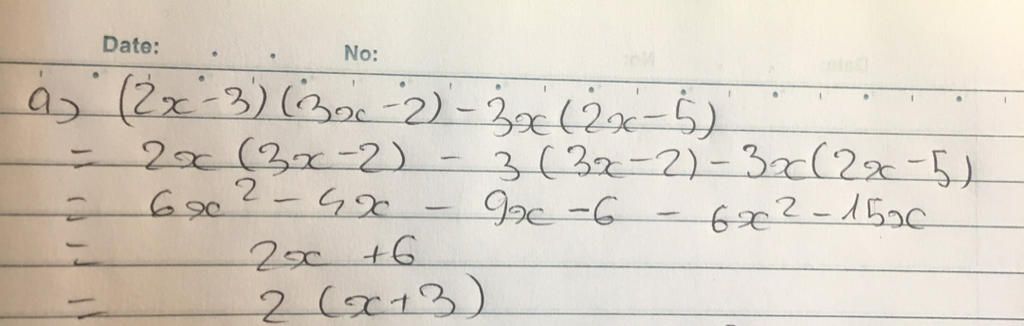 Date: No:
a) (2x-3)(3x-2)-3x(2x-5)
= 2x(3x-2) - 3(3x-2)-3x(2x-5)
= 6x²-4x - 9x-6 - 6x²-15x
= 2x +6
= 2(x+3)